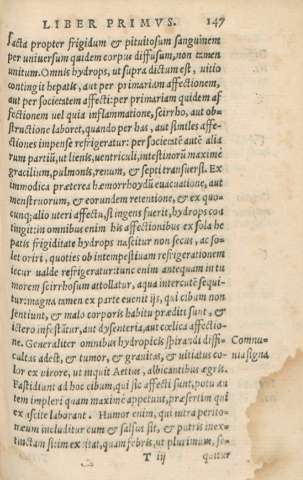 LIBER PRIMVS. 147
facta propter frigidum & pituitosum sanguinem
per uniuersum quidem corpus diffusum, non tamen
unitum. Omnis hydrops, ut supra dictum est, uitio
contingit hepatis, aut per primariam affectionem,
aut per societatem affecti: per primariam quidem af
fectionem uel quia inflammatione, scirrho, aut ob-
structione laboret, quando per has, aut similes affe-
ctiones impense refrigeratur: per societatē autē alia
rum partiū, ut lienis, uentriculi, intestinorū maxime
gracilium, pulmonis, renum, & septi transuersi. Ex
immodica præterea hæmorrhoydū euacuatione, aut
menstruorum, & eorundem retentione, & ex quo-
cunq; alio uteri affectu, si ingens fuerit, hydrops con
tingit: in omnibus enim his affectionibus ex sola he
patis frigiditate hydrops nascitur non secus, ac so-
let oriri, quoties ob intempestiuam refrigerationem
iecur ualde refrigeratur: tunc enim antequam in tu
morem scirrhosum attollatur, aqua intercutē sequi-
tur: magna tamen ex parte euenit ijs, qui cibum non
sentiunt, & malo corporis habitu præditi sunt, &
ictero infestātur, aut dysenteria, aut cœlica affectio-
ne. Generaliter omnibus hydropicis spirandi diffi-
cultas adest, & tumor, & grauitas, & uitiatus co-
lor ex uirore, ut inquit Aetius, albicantibus ægris.
Fastidiunt ad hoc cibum, qui sic affecti sunt, potu au
tem impleri quam maxime appetunt, præsertim qui
ex ascite laborant. Humor enim, qui intra perito-
næum includitur cum & salsus sit, & putris inex-
tinctam sitim excitat, quam febris, ut plurimum, se-
T iij quitur
Commu-
nia signa